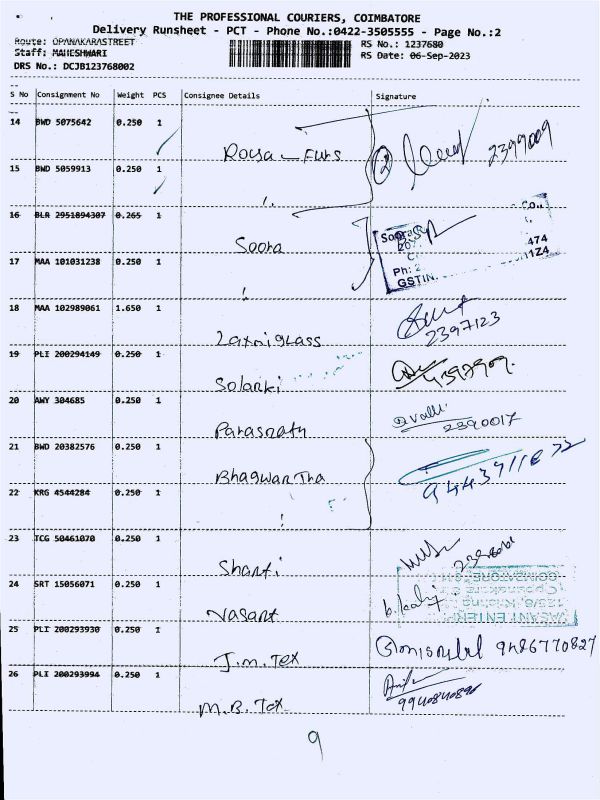 THE PROFESSIONAL COURIERS, COIMBATORE
Delivery Runsheet - PCT - Phone No.:0422-3505555 - Page No.:2
Route: OPANAKARASTREET
Staff: MAHESHWARI
DRS No.: DCJB123768002
RS No.: 1237680
RS Date: 06-Sep-2023
S No Consignment No Weight PCS Consignee Details Signature
14 BWD 5075642 0.250 1
Roysa Furs
2399009
15 BWD 5059913 0.250 1
16 BLR 2951894307 0.265 1
Soora
Co.,
474
Ph: 2
GSTIN.
11Z4
17 MAA 101031238 0.250 1
18 MAA 102989061 1.650 1
Laxmi glass
2397123
19 PLI 200294149 0.250 1
Solanki
20 AWY 304685 0.250 1
Parasnath
Valli
2390017
21 BWD 20382576 0.250 1
Bhagwan Tha
22 KRG 4544284 0.250 1
23 TCG 50461070 0.250 1
Shanti
24 SRT 15056071 0.250 1
Vasant
VASANT ENTERP
COIMBATORE
25 PLI 200293930 0.250 1
J.M. Tex
9486770827
26 PLI 200293994 0.250 1
M.B. Tex
9940840898
9